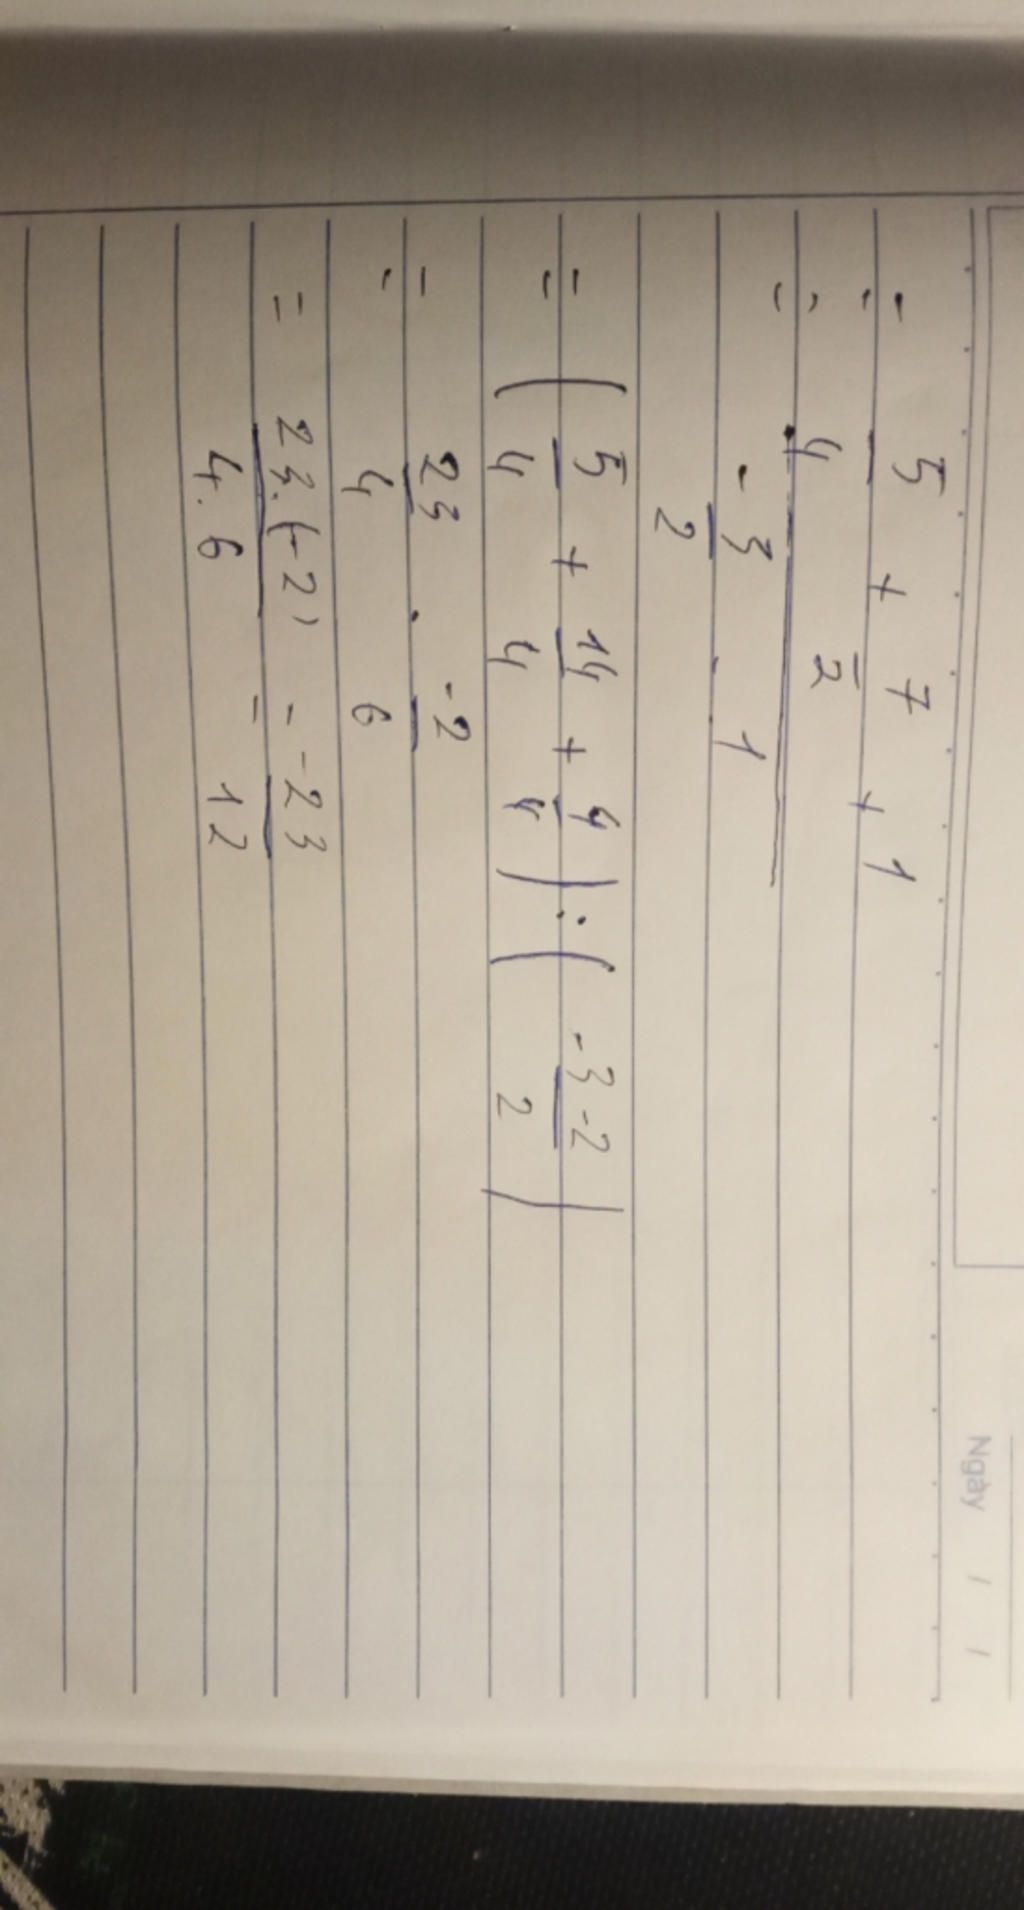 Ngày / /
= 5/4 + 7/2 + 1
= -3/2 - 1
= (5/4 + 14/4 + 4/4) : (-3-2/2)
= 23/4 . -2/6
= 23.(-2)/4.6 = -23/12